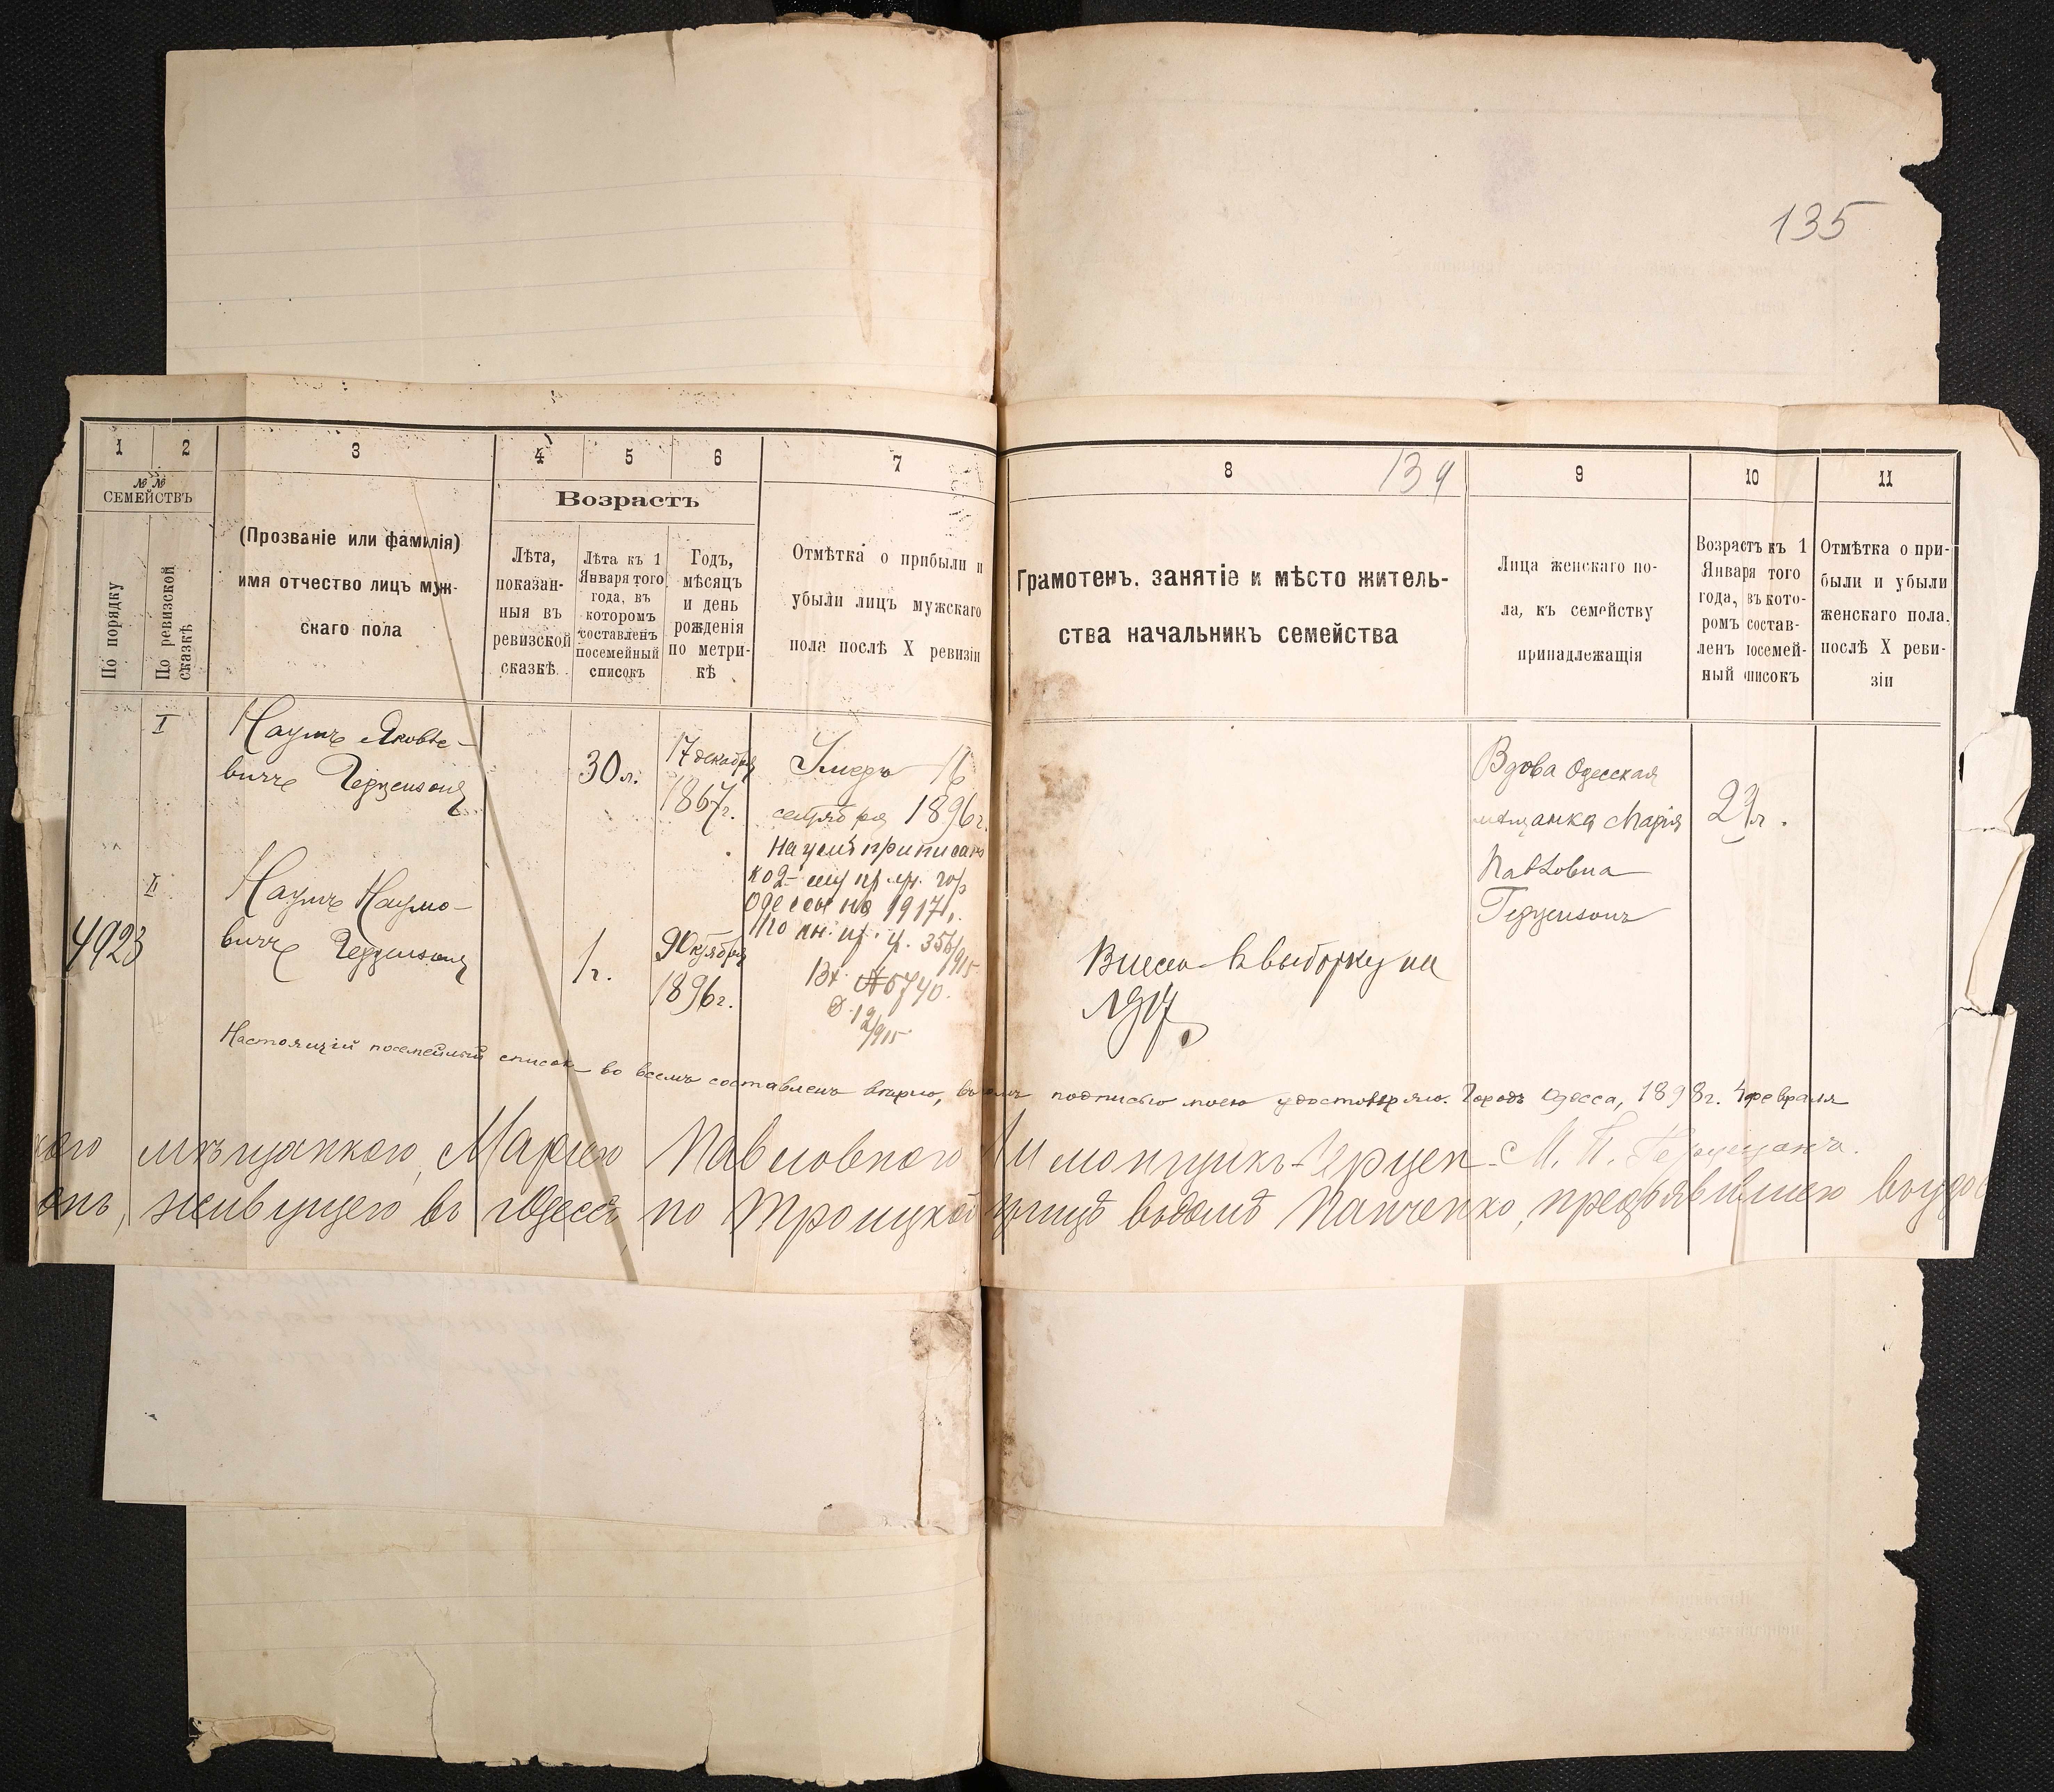 135
1
2
3
4
5
6
7
8
134
9
10
11
№№
СЕМЕЙСТВЪ
По порядку
По ревизской
сказкѣ
(Прозваніе или фамилія)
имя отчество лицъ муж-
скаго пола
Возрастъ
Лѣта,
показан-
ныя въ
ревизской
сказкѣ.
Лѣта къ 1
Января того
года, въ
которомъ
составленъ
посемейный
списокъ
Годъ,
мѣсяцъ
и день
рожденія
по метри-
кѣ
Отмѣтка о прибыли и
убыли лицъ мужскаго
пола послѣ X ревизіи
Грамотенъ, занятіе и мѣсто житель-
ства начальникъ семейства
Лица женскаго по-
ла, къ семейству
принадлежащія
Возрастъ къ 1
Января того
года, въ кото-
ромъ состав-
ленъ посемей-
ный списокъ
Отмѣтка о при-
были и убыли
женскаго пола,
послѣ X реви-
зіи
I
Наумъ Яковле-
вичъ Герценсонъ
30 л.
17 декабря
1867 г.
Умеръ 16
сентября 1896 г.
Вдова Одесская
мѣщанка Марія
Павловна
Герценсонъ
29 л.
II
4923
Наумъ Наумо-
вичъ Герценсонъ
1 г.
9 Октября
1896 г.
Наумъ приписанъ
ко 2- му пр. уч. гор
Одессы на 1917 г.
по кн. пр. у. 356/915
Вх. № 5740.
Внесенъ въ выборку на
Настоящій посемейный списокъ во всемъ составленъ вѣрно, въ чемъ подписью моею удостовѣряю. Городъ Одесса, 1898 г. 4 февраля
М. П. Герценсонъ.
мѣщанкою, Маріею Павловною Лимонщикъ-Герцен-
онъ, живущею въ г. Одессѣ, по Троицкой улицѣ въ домѣ Панченко, предъявившею